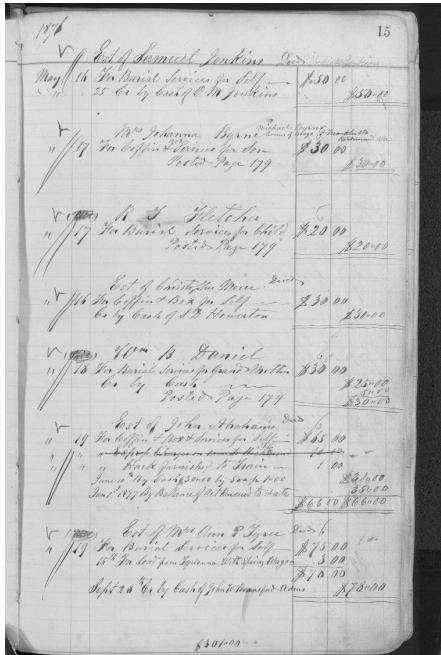 1876
15
Est of Samuel Jenkins Decd
May 16 For Burial Services for Self $50 00
" 25 Cr by Cash of O M Jenkins $50-00
Mrs Johanna Byrne Michael Byrne
" 17 For Coffin & Services for Son $30 00
Posted Page 179 $30-00
R S Fletcher
" 17 For Burial Services for Child $20 00
Posted Page 179 $20-00
Est of Christopher Moore Decd
" 16 For Coffin & Box for Self $30 00
Cr by Cash of S B Howerton $30-00
Wm B Daniel
" 18 For Burial Services for Grand Mother $30 00
Cr by Cash $25-00
5-00
Posted Page 179 $30-00
Est of John Abrahams Decd
" 19 For Coffin & Box & Services for Self $65 00
" " " Hack furnished to Train 1 00
June By Cash $31-00
Jany 1877 By Balance of Act to date 35-00
$66 00 $66-00
Est of Mrs Ann P Tyree Decd
" 19 For Burial Services for Self $75 00
15th For Spring Wagon 3 00
$78 00
Sept 20th Cr by Cash of John $78-00
$301-00